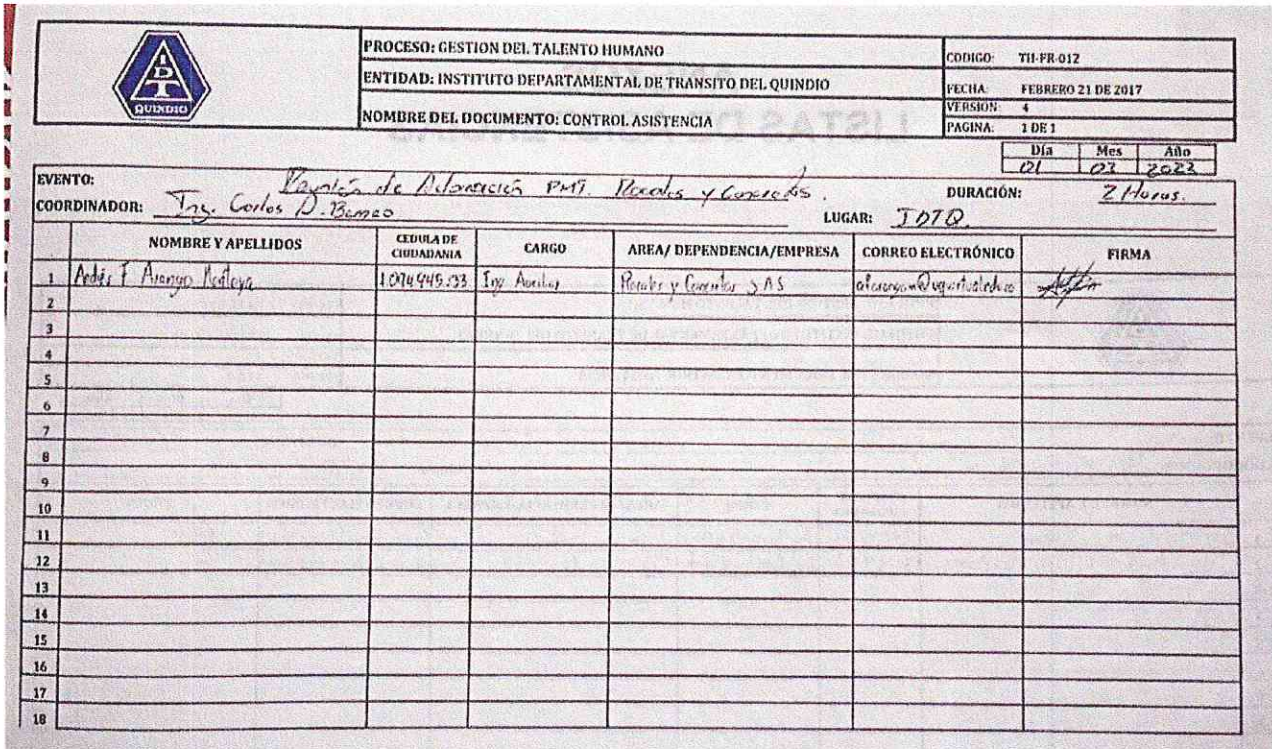 IDT
QUINDIO
PROCESO: GESTION DEL TALENTO HUMANO
ENTIDAD: INSTITUTO DEPARTAMENTAL DE TRANSITO DEL QUINDIO
NOMBRE DEL DOCUMENTO: CONTROL ASISTENCIA
CODIGO: TH-FR-012
FECHA: FEBRERO 21 DE 2017
VERSION: 4
PAGINA: 1 DE 1
Día Mes Año
01 03 2023
EVENTO: Reunión de PMT. y DURACIÓN: 2 Horas.
COORDINADOR: Ing. Carlos LUGAR: IDTQ.
NOMBRE Y APELLIDOS CEDULA DE CIUDADANIA CARGO AREA/ DEPENDENCIA/EMPRESA CORREO ELECTRÓNICO FIRMA
1 Andrés F Arango Montoya Ing Auxiliar y SAS
2
3
4
5
6
7
8
9
10
11
12
13
14
15
16
17
18